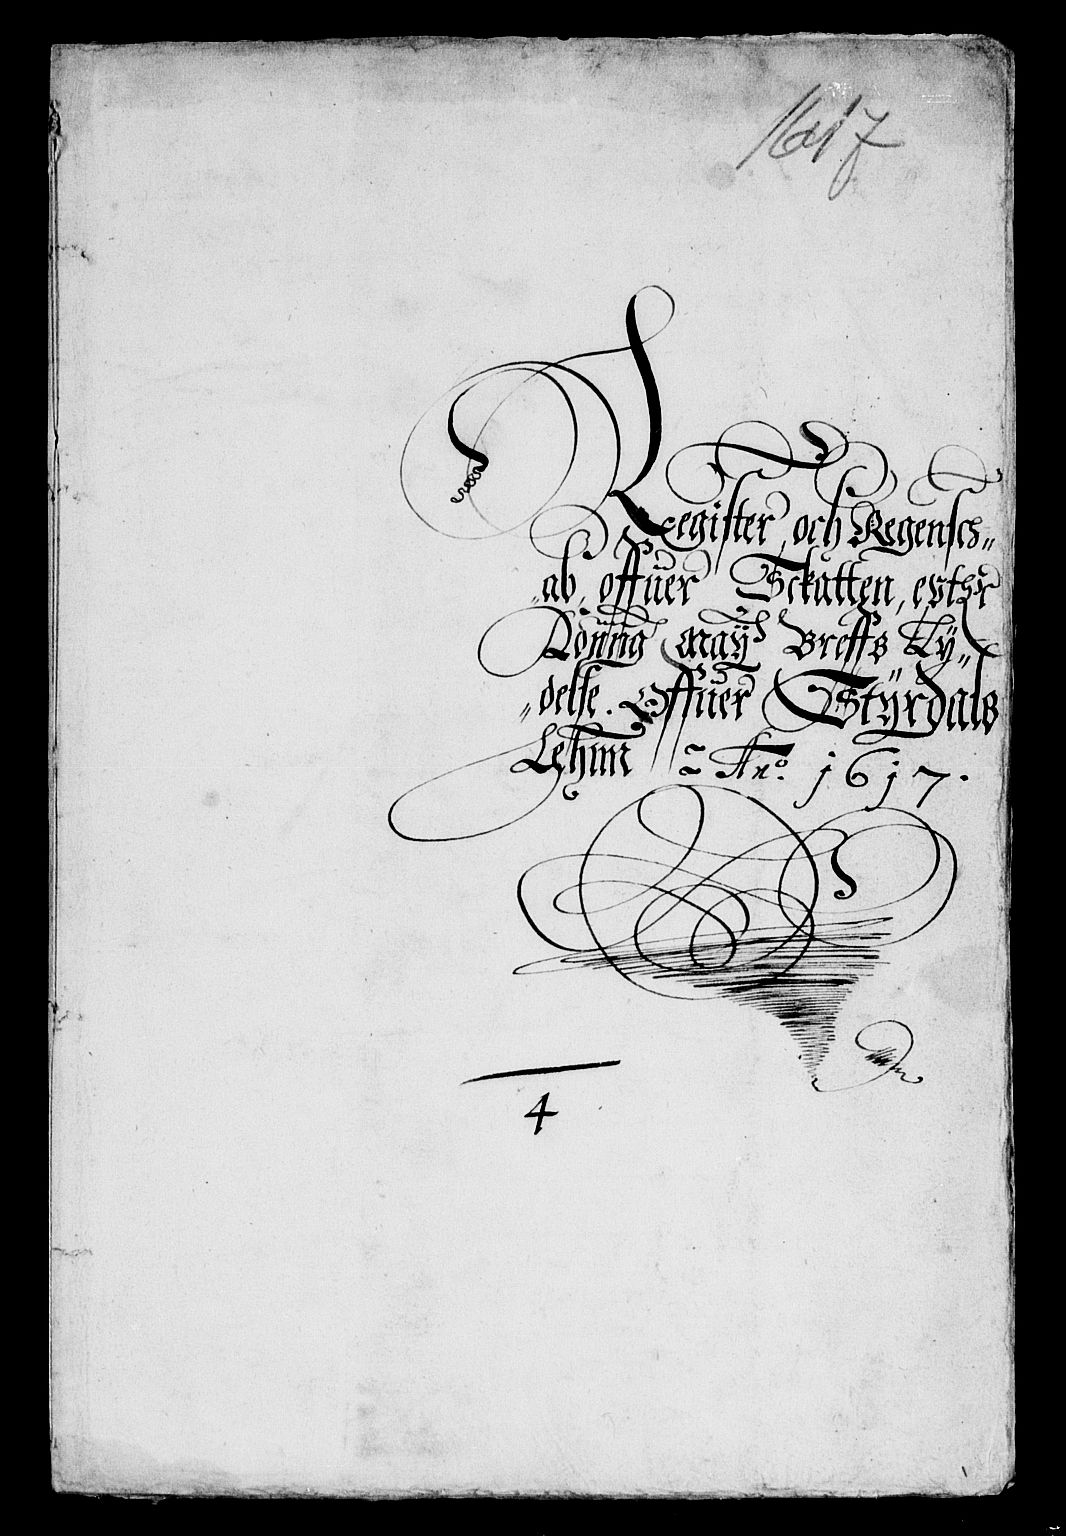 1617
Register, och Regensch„
„ab, offuer Sckatten, epther
Konng Maÿ Breffs Ly„
„delse. Offuer Stÿrdals
Lehnn ~ Anº. 1617.
4